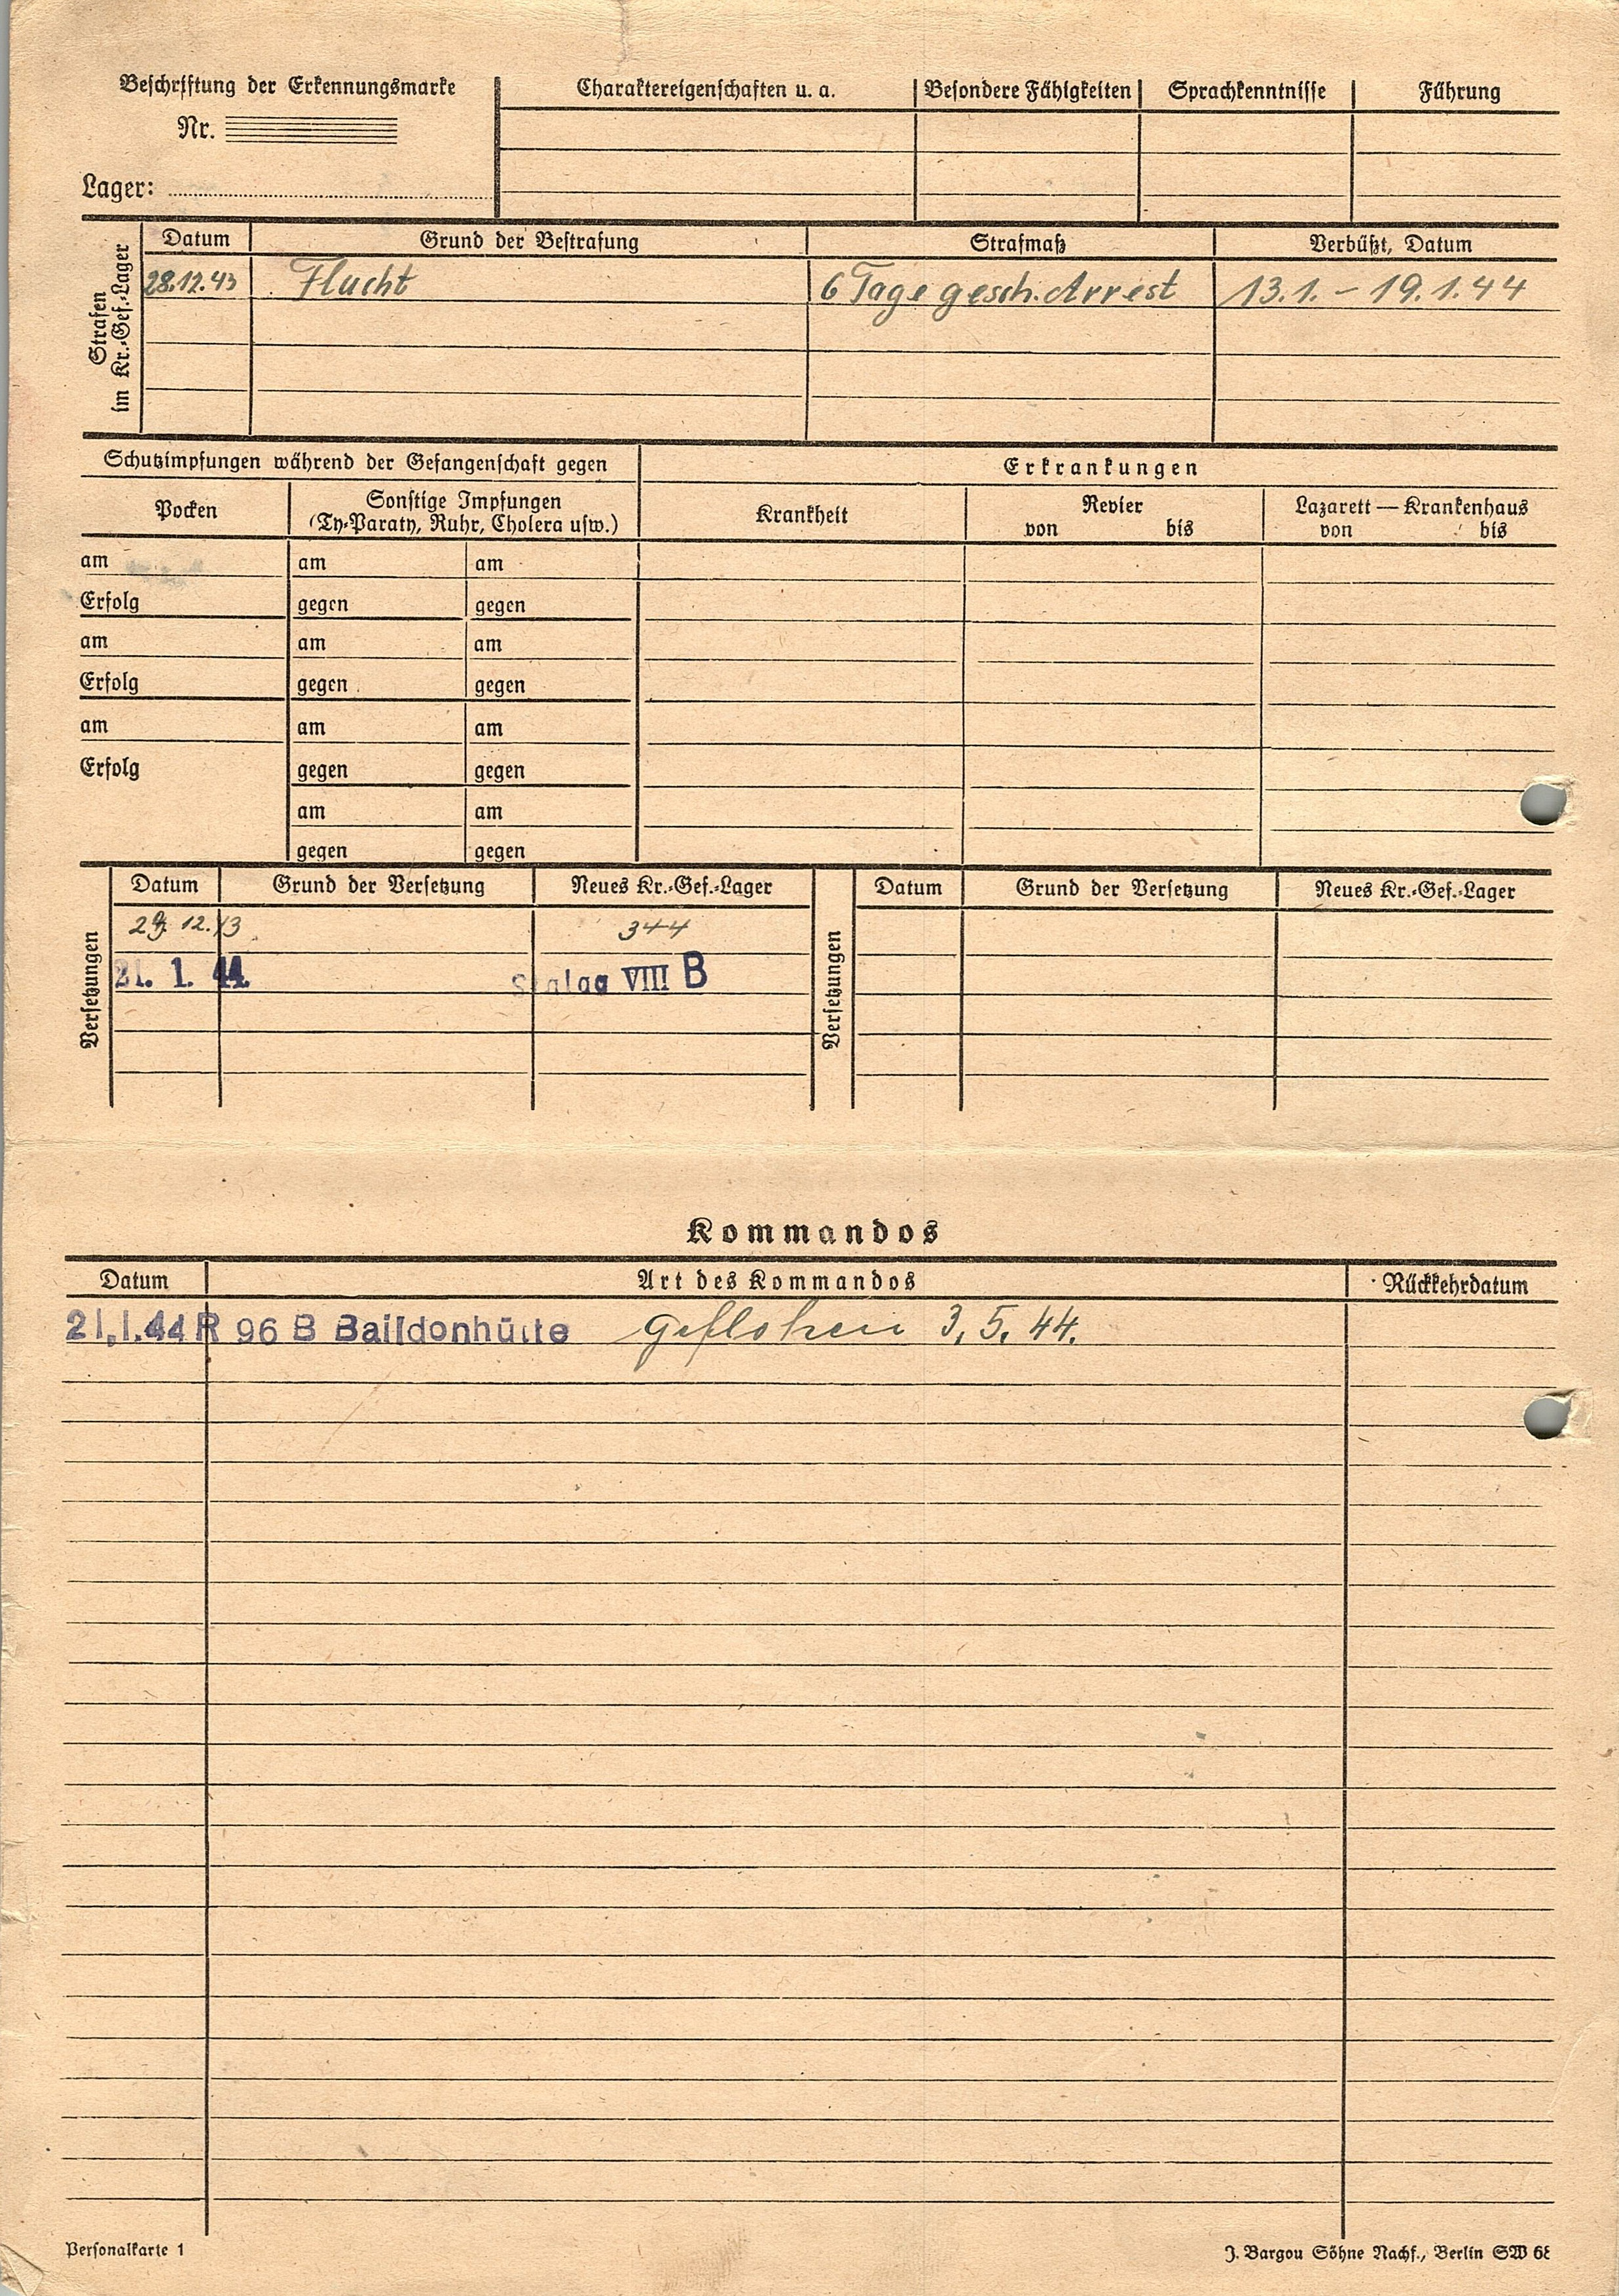 Beschriftung der Erkennungsmarke
Nr.
Lager:
Charaktereigenschaften u. a. Besondere Fähigkeiten Sprachkenntnisse Führung
Strafen im Kr.-Gef.-Lager
Datum Grund der Bestrafung Strafmaß Verbüßt, Datum
28.12.43 Flucht 6 Tage gesch. Arrest 13.1. - 19.1.44
Schutzimpfungen während der Gefangenschaft gegen Erkrankungen
Pocken Sonstige Impfungen Krankheit Revier Lazarett — Krankenhaus
(Ty-Paraty, Ruhr, Cholera usw.) von bis von bis
am am am
Erfolg gegen gegen
am am am
Erfolg gegen gegen
am am am
Erfolg gegen gegen
am am
gegen gegen
Versetzungen
Datum Grund der Versetzung Neues Kr.-Gef.-Lager
12.43 344
21. 1. 44. Stalag VIII B
Versetzungen
Datum Grund der Versetzung Neues Kr.-Gef.-Lager
Kommandos
Datum Art des Kommandos Rückkehrdatum
21.1.44 R 96 B Baildonhütte geflohen 3.5.44.
Personalkarte 1
J. Bargou Söhne Nachf., Berlin SW 68